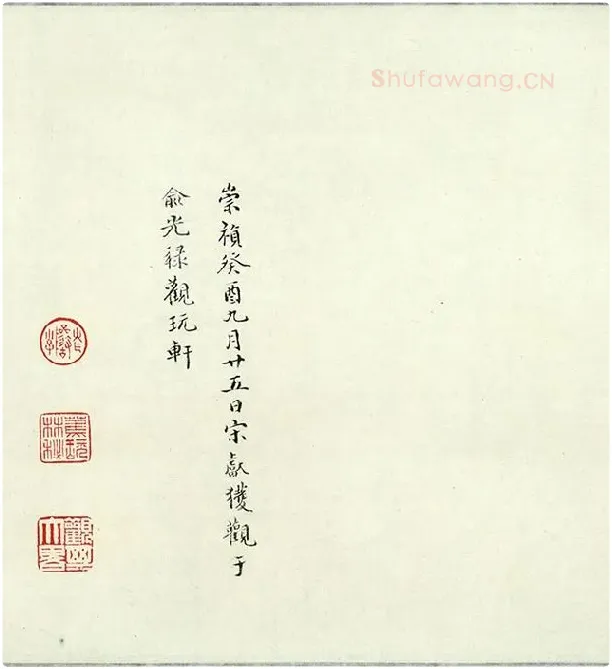 Shufawang.CN
崇禎癸酉九月廿五日宋獻獲觀于
俞光祿觀玩軒
觀其大略